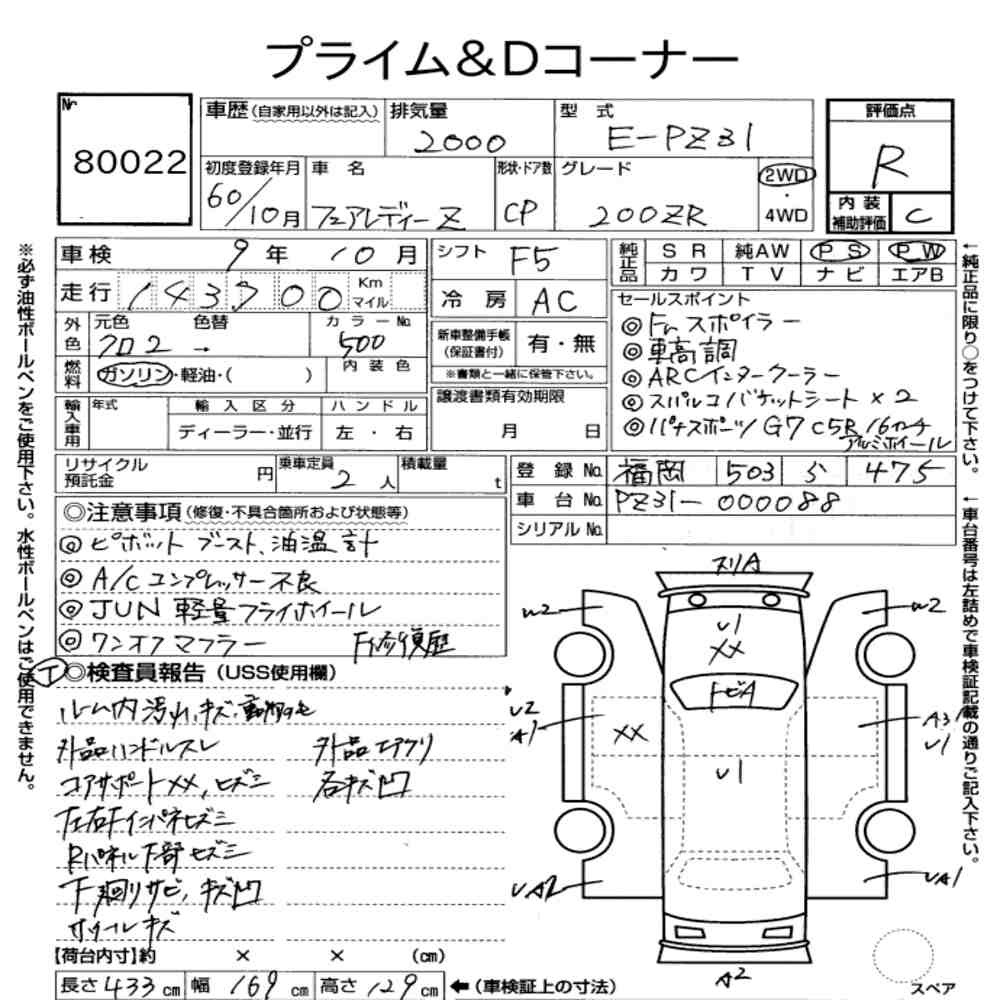 プライム&Dコーナー
№
80022
車歴(自家用以外は記入)
排気量
2000
型式
E-PZ31
評価点
R
初度登録年月
60/10月
車名
フェアレディーZ
形状・ドア数
CP
グレード
200ZR
2WD
・
4WD
内装
補助評価
C
車検 9年 10月
走行 143700 Km マイル
外色
元色 色替
クロ2 →
カラー№
500
燃料
ガソリン・軽油・( )
内装色
輸入車用
年式
輸入区分
ディーラー・並行
ハンドル
左・右
シフト F5
冷房 AC
新車整備手帳
(保証書付)
有・無
※書類と一緒に保管下さい。
譲渡書類有効期限
月 日
純正品
SR 純AW PS PW
カワ TV ナビ エアB
セールスポイント
◎Fスポイラー
◎車高調
◎ARCインタークーラー
◎スパルコバケットシート×2
◎パナスポーツG7 C5R 16インチ
アルミホイール
リサイクル
預託金 円
乗車定員
2人
積載量
t
登録№ 福岡 503 475
車台№ PZ31-000088
シリアル№
◎注意事項(修復・不具合箇所および状態等)
◎ピボット ブースト、油温計
◎A/Cコンプレッサー不良
◎JUN 軽量フライホイール
◎ワンオフマフラー F修復歴
◎検査員報告(USS使用欄)
ルーム内汚れ、キズ
外品ハンドルスレ 外品エアクリ
コアサポートXX、ヒズミ 右キズ凹
左右Fインパネヒズミ
Rパネル下部ヒズミ
下廻りサビ、キズ凹
ホイールキズ
【荷台内寸】約 × × (cm)
長さ433cm 幅169cm 高さ129cm ←(車検証上の寸法)
スリA
U1
XX
トビA
XX
U1
U2
A1
A3
U1
UA2
UA1
A2
スペア
※必ず油性ボールペンをご使用下さい。水性ボールペンはご使用できません。
←純正品に限り○をつけて下さい。
←車台番号は左詰めで車検証記載の通りご記入下さい。